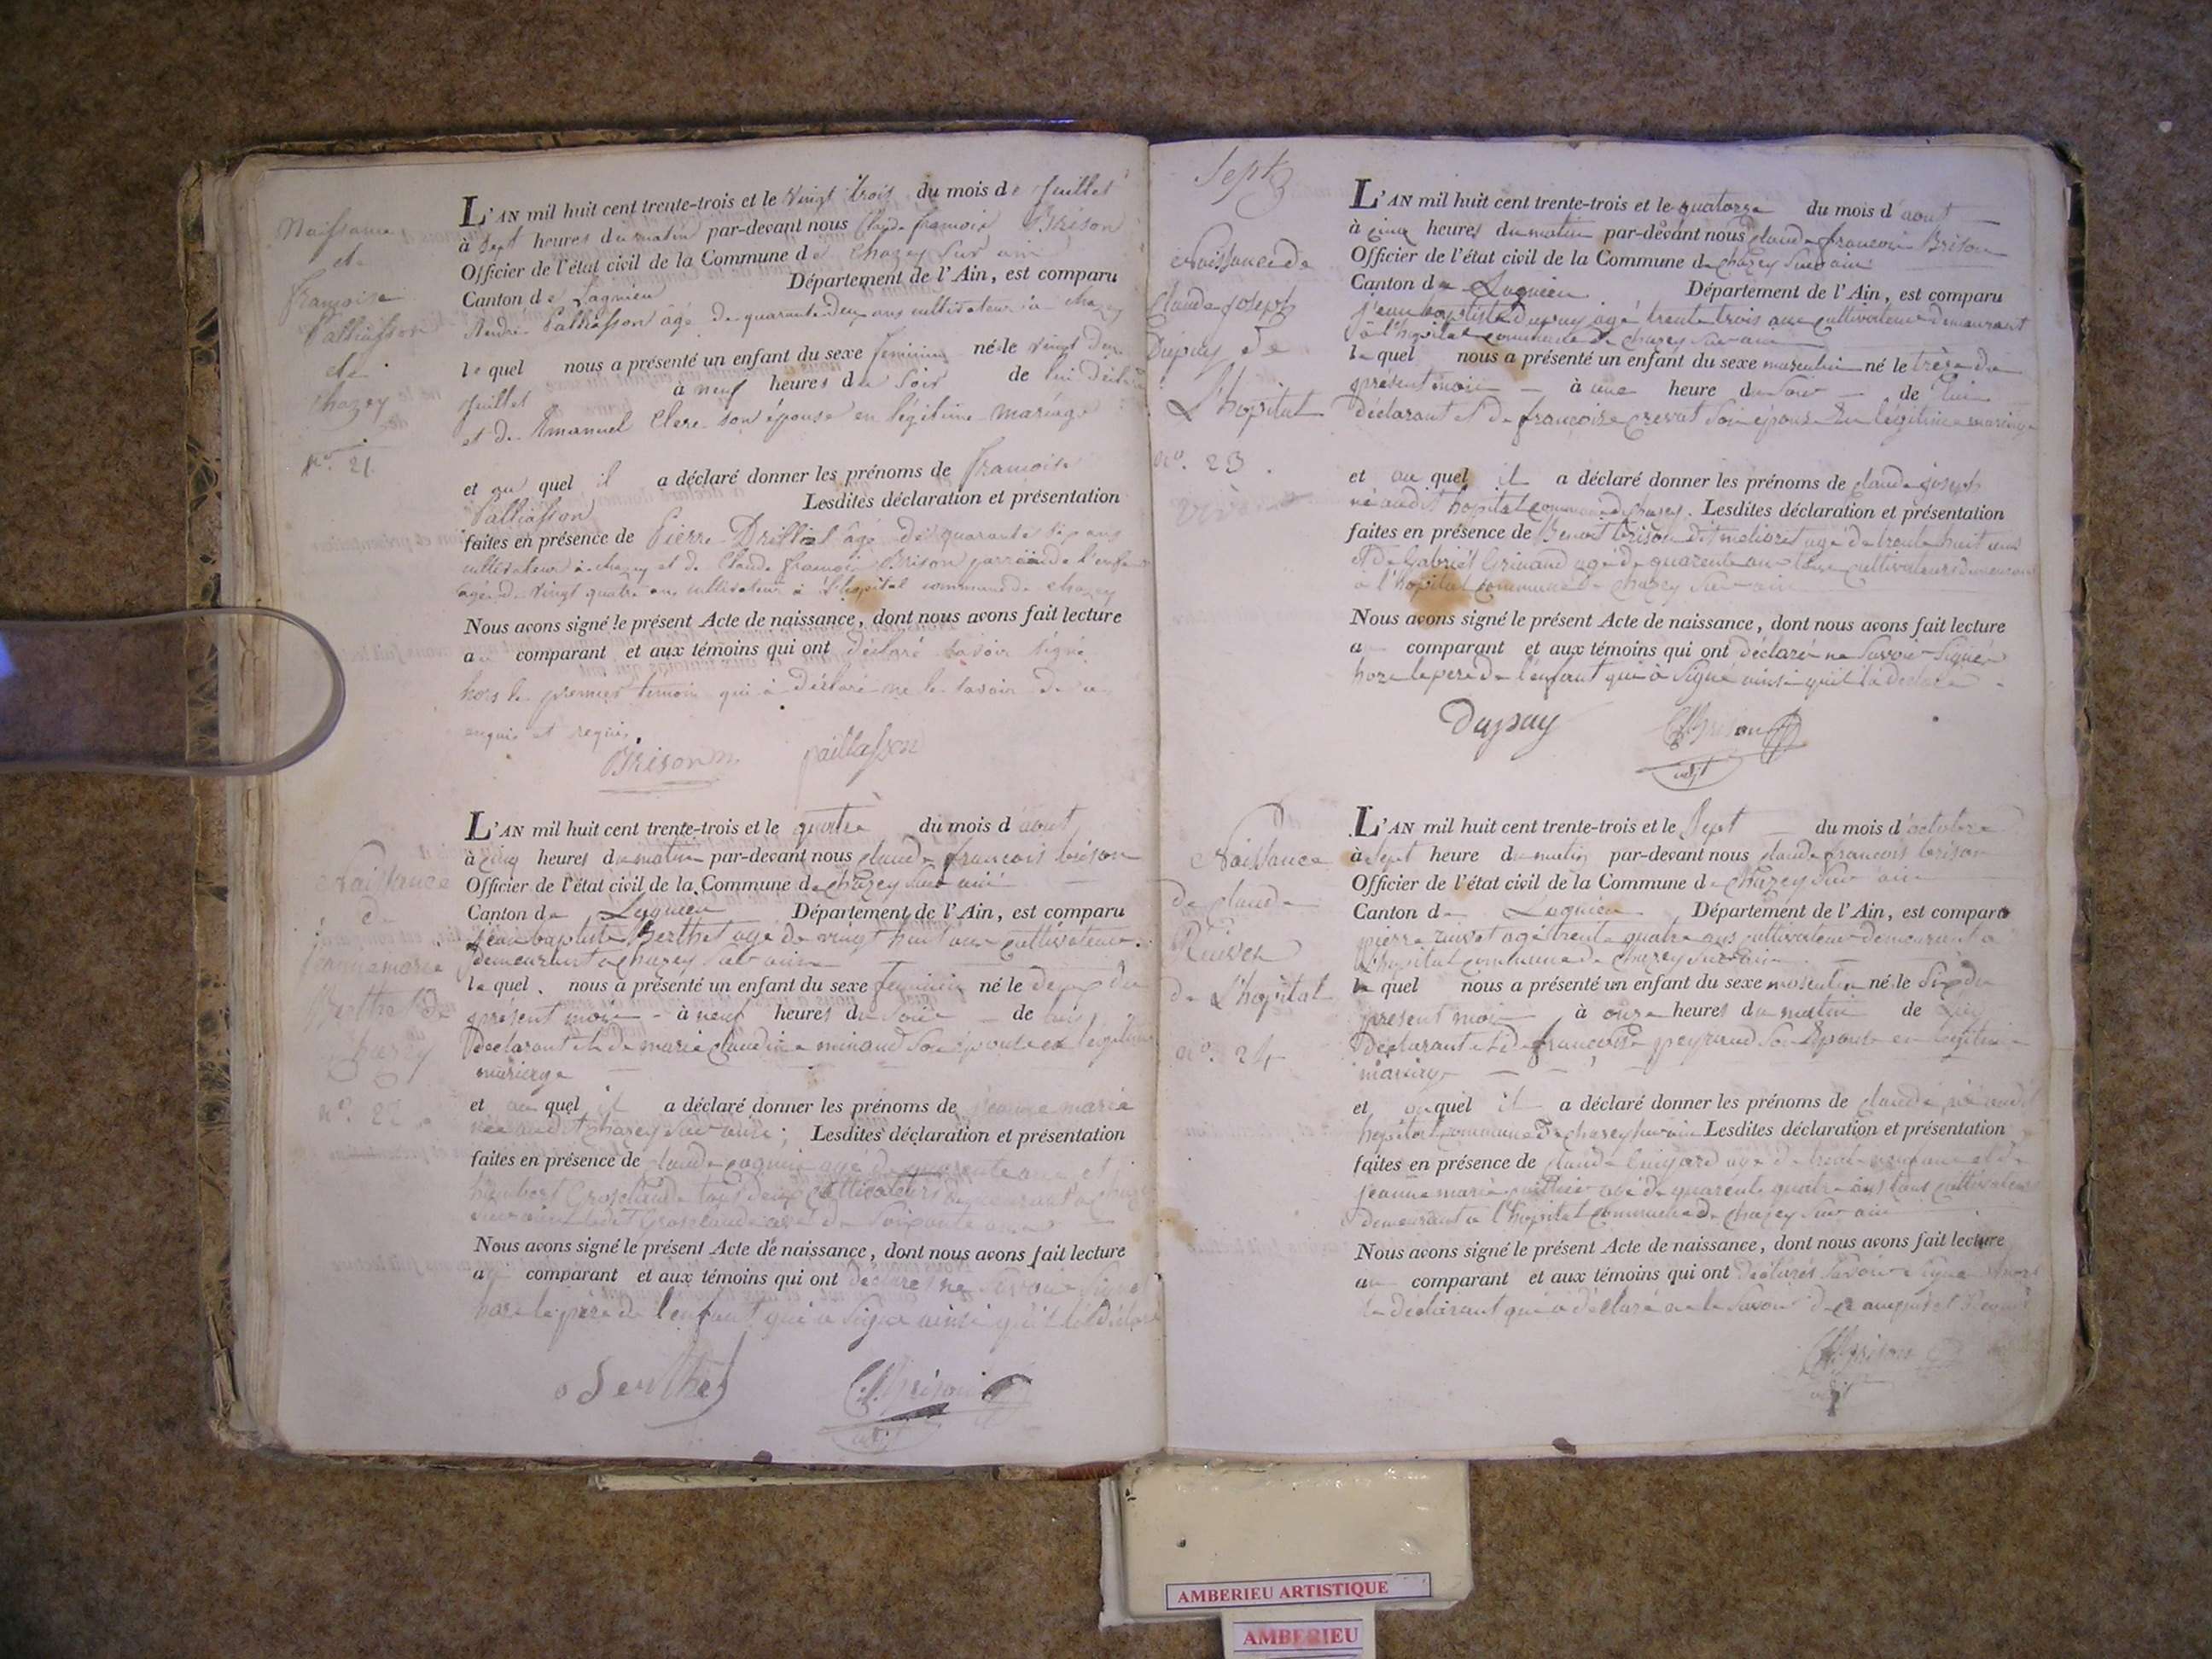 Naissance
de
françoise
Palliasson
de
chazey
n°. 21
L'AN mil huit cent trente-trois et le vingt trois du mois de Juillet
à sept heures du matin par-devant nous Claude françois Brison
Officier de l'état civil de la Commune de Chazey sur ain
Canton de Lagnieu Département de l'Ain, est comparu
André Palliasson âgé de quarante deux ans cultivateur à chazey
le quel nous a présenté un enfant du sexe feminin né le vingt deux
Juillet à neuf heures du soir de lui déclarant
et de Emanuel Clerc son épouse en légitime mariage
et au quel il a déclaré donner les prénoms de francoise
Palliasson Lesdites déclaration et présentation
faites en présence de Pierre Drillat âgé de quarante six ans
cultivateur à chazey et de Claude françois Brison parrain de l'enfant
âgé de vingt quatre ans cultivateur à l'hopital commune de chazey
Nous avons signé le présent Acte de naissance, dont nous avons fait lecture
au comparant et aux témoins qui ont déclaré savoir signé
hors le premier témoin qui à déclaré ne le savoir de ce
enquis et requis.
Brison paillasson
Naissance
de
jeanne marie
Berthet de
Chazey
n°. 22
L'AN mil huit cent trente-trois et le quatre du mois d'aout
à cinq heures du matin par-devant nous claude francois brison
Officier de l'état civil de la Commune de chazey sur ain
Canton de Lagnieu Département de l'Ain, est comparu
jean baptiste Berthet age de vingt huit ans cultivateur
demeurant a chazey sur ain
le quel nous a présenté un enfant du sexe feminin né le deux du
présent mois à neuf heures du soir de lui
declarant et de marie claudine minaud son épouse en legitime
mariage
et au quel il a déclaré donner les prénoms de jeanne marie
née audit chazey sur ain ; Lesdites déclaration et présentation
faites en présence de claude agé de ans et
humbert Grosclaude tous deux cultivateurs demeurant a chazey
sur ain ledit Grosclaude agé de soixante ans
Nous avons signé le présent Acte de naissance, dont nous avons fait lecture
au comparant et aux témoins qui ont déclarés ne savoir signer
hors le père de l'enfant qui a signé ainsi qu'il l'a déclaré
Berthet Brison
adjt
Sept
Naissance de
claude joseph
Dupuy de
L'hopital
n°. 23.
L'AN mil huit cent trente-trois et le quatorze du mois d'aout
à cinq heures du matin par-devant nous claude françois Brison
Officier de l'état civil de la Commune de chazey sur ain
Canton de Lagnieu Département de l'Ain, est comparu
jean baptiste Dupuy agé trente trois ans cultivateur demeurant
à l'hopital commune de chazey sur ain
le quel nous a présenté un enfant du sexe masculin né le treize du
présent mois à une heure du soir de lui
déclarant et de françoise crevat son épouse en légitime mariage
et au quel il a déclaré donner les prénoms de claude joseph
né audit hopital commune de chazey. Lesdites déclaration et présentation
faites en présence de Benoit brison dit melioret agé de trente huit ans
et de Gabriel Grimaud agé de quarente ans tous cultivateurs demeurant
a l'hopital commune de chazey sur ain
Nous avons signé le présent Acte de naissance, dont nous avons fait lecture
au comparant et aux témoins qui ont déclaré ne savoir signer
hors le père de l'enfant qui à signé ainsi qu'il l'a déclaré
Dupuy Brison
adjt
Naissance
de claude
de L'hopital
n°. 24
L'AN mil huit cent trente-trois et le sept du mois d'octobre
à sept heure du matin par-devant nous claude francois brison
Officier de l'état civil de la Commune de chazey sur ain
Canton de Lagnieu Département de l'Ain, est comparu
pierre agé trente quatre ans cultivateur demeurant a
l'hopital commune de chazey sur ain
le quel nous a présenté un enfant du sexe masculin né le six du
present mois à onze heures du matin de lui
Déclarant et de françoise peyraud son Epouse en légitime
mariage
et au quel il a déclaré donner les prénoms de claude né audit
hopital commune de chazey sur ain Lesdites déclaration et présentation
faites en présence de claude agé de trente ans et de
jeanne marie agé de quarente quatre ans tous cultivateurs
demeurant a l'hopital commune de chazey sur ain
Nous avons signé le présent Acte de naissance, dont nous avons fait lecture
au comparant et aux témoins qui ont déclarés savoir signer hors
le déclarant qui a déclaré ne le savoir de ce enquis et Requis
Brison
adjt
AMBERIEU ARTISTIQUE
AMBERIEU